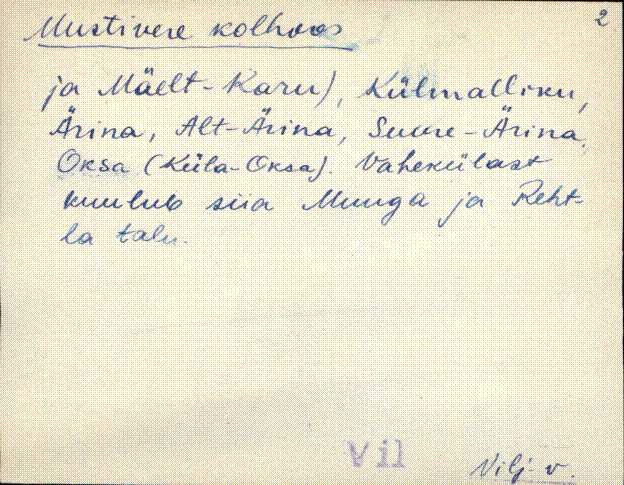 2
Mustivere kolhoos
ja Mäelt-Karu), Külmalliku,
Ärina, Alt-Ärina, Suure-Ärina,
Oksa (Küla-Oksa). Vahekülast
kuulub siia Muuga ja Reht-
la talu.
Vil
Vilj-v.